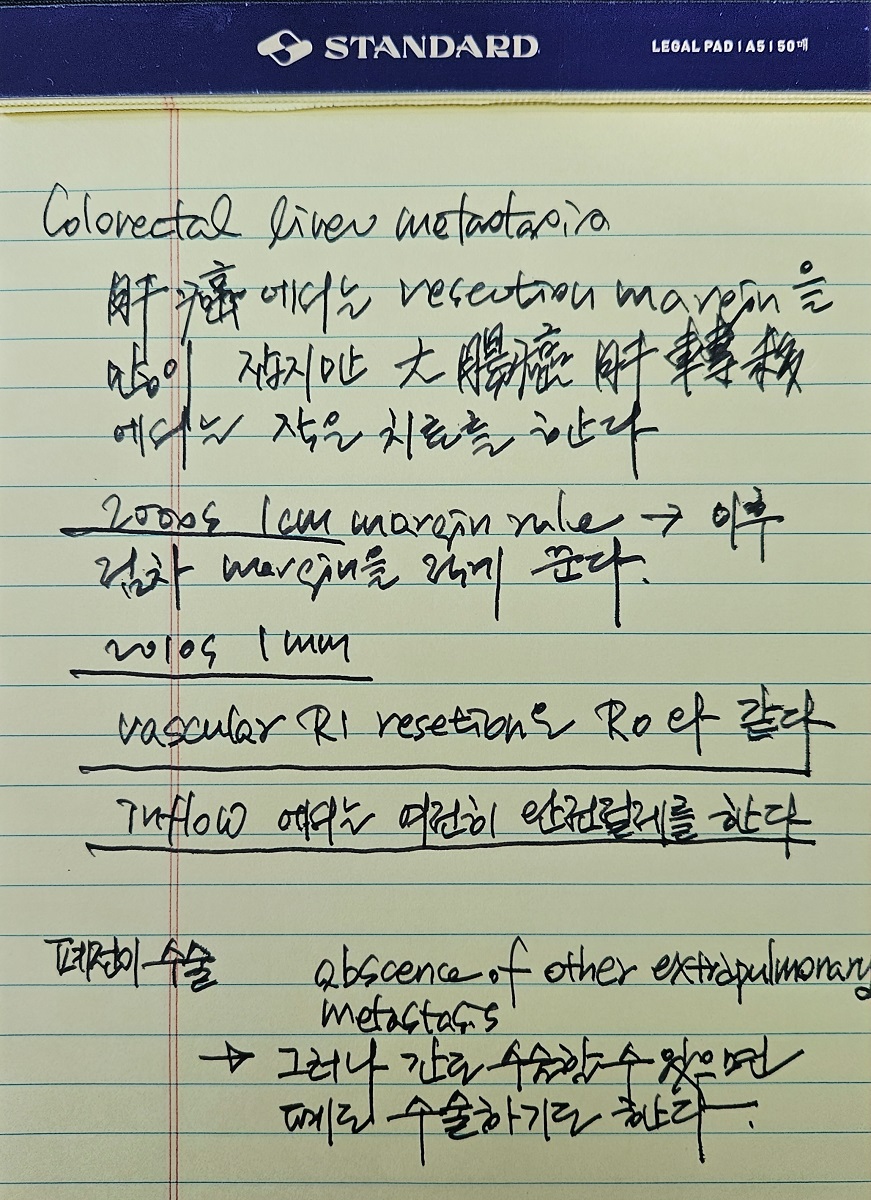 STANDARD
LEGAL PAD | A5 | 50매
Colorectal liver metastasis
肝癌에서는 resection margin을
많이 잡지만 大腸癌 肝 轉移
에서는 작은 치료를 한다
2000s 1cm margin rule → 이후
점차 margin을 작게 준다.
2010s 1mm
vascular R1 resetion은 R0 와 같다
Inflow 에서는 여전히 완전절제를 한다
폐전이 수술 abscence of other extrapulmonary
metastasis
→ 그러나 간도 수술할 수 있으면
폐도 수술하기도 한다.